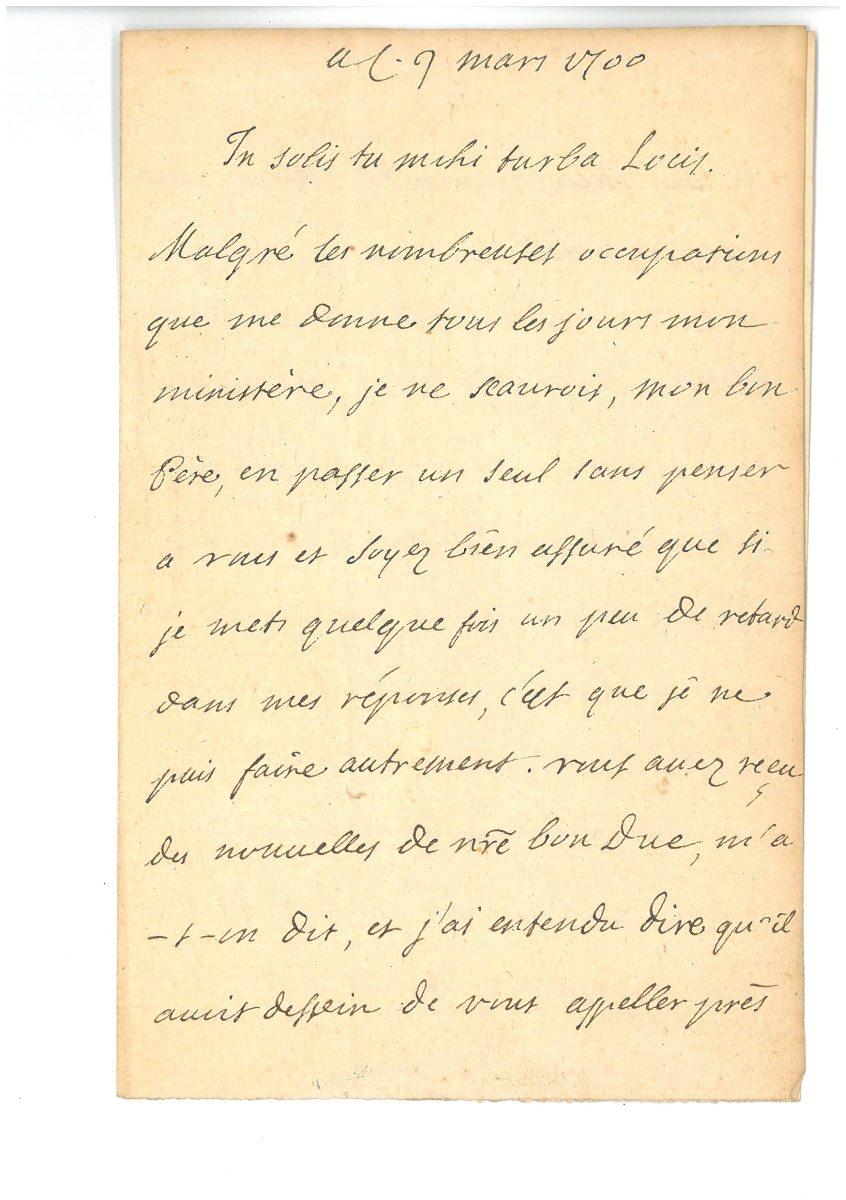 a C. 9 mars 1700
In solis tu mihi turba Locis.
Malgré les nombreuses occupations
que me donne tous les jours mon
ministère, je ne scaurois, mon bon
Père, en passer un seul sans penser
a vous et soyez bien assuré que si
je mets quelque fois un peu de retard
dans mes réponses, c'est que je ne
puis faire autrement. vous avez reçeu
des nouuelles de nr̃e bon Duc, m'a
-t-on dit, et j'ai entendu dire qu'il
auoit dessein de vous appeller près